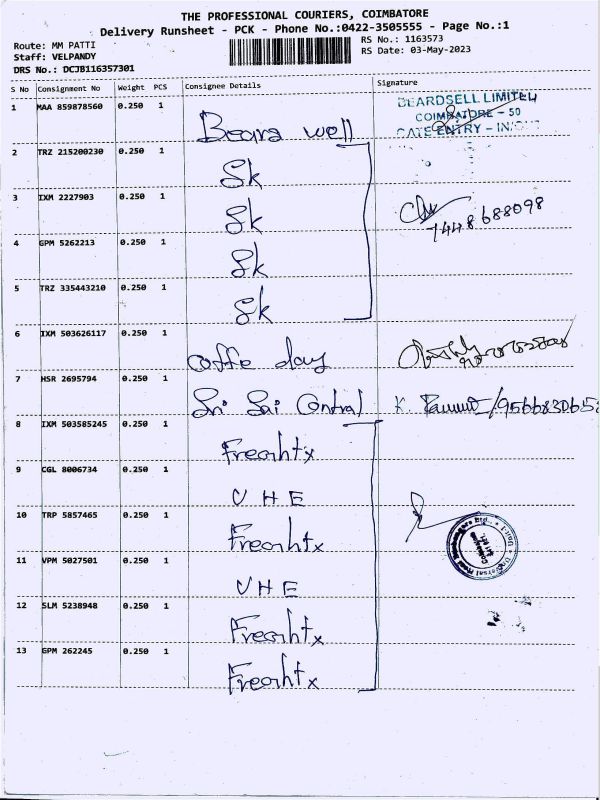 THE PROFESSIONAL COURIERS, COIMBATORE
Delivery Runsheet - PCK - Phone No.:0422-3505555 - Page No.:1
Route: MM PATTI
RS No.: 1163573
Staff: VELPANDY
RS Date: 03-May-2023
DRS No.: DCJB116357301
S No Consignment No Weight PCS Consignee Details Signature
1 MAA 859878560 0.250 1
BEARDSELL LIMITED
COIMBATORE - 50
GATE ENTRY - IN
2 TRZ 215200230 0.250 1 Sk
3 IXM 2227903 0.250 1 Sk
7448688098
4 GPM 5262213 0.250 1 Sk
5 TRZ 335443210 0.250 1 Sk
6 IXM 503626117 0.250 1 coffe day
7 HSR 2695794 0.250 1 Sri Sai Central K
8 IXM 503585245 0.250 1
9 CGL 8006734 0.250 1 VHE
10 TRP 5857465 0.250 1
11 VPM 5027501 0.250 1 VHE
12 SLM 5238948 0.250 1
13 GPM 262245 0.250 1